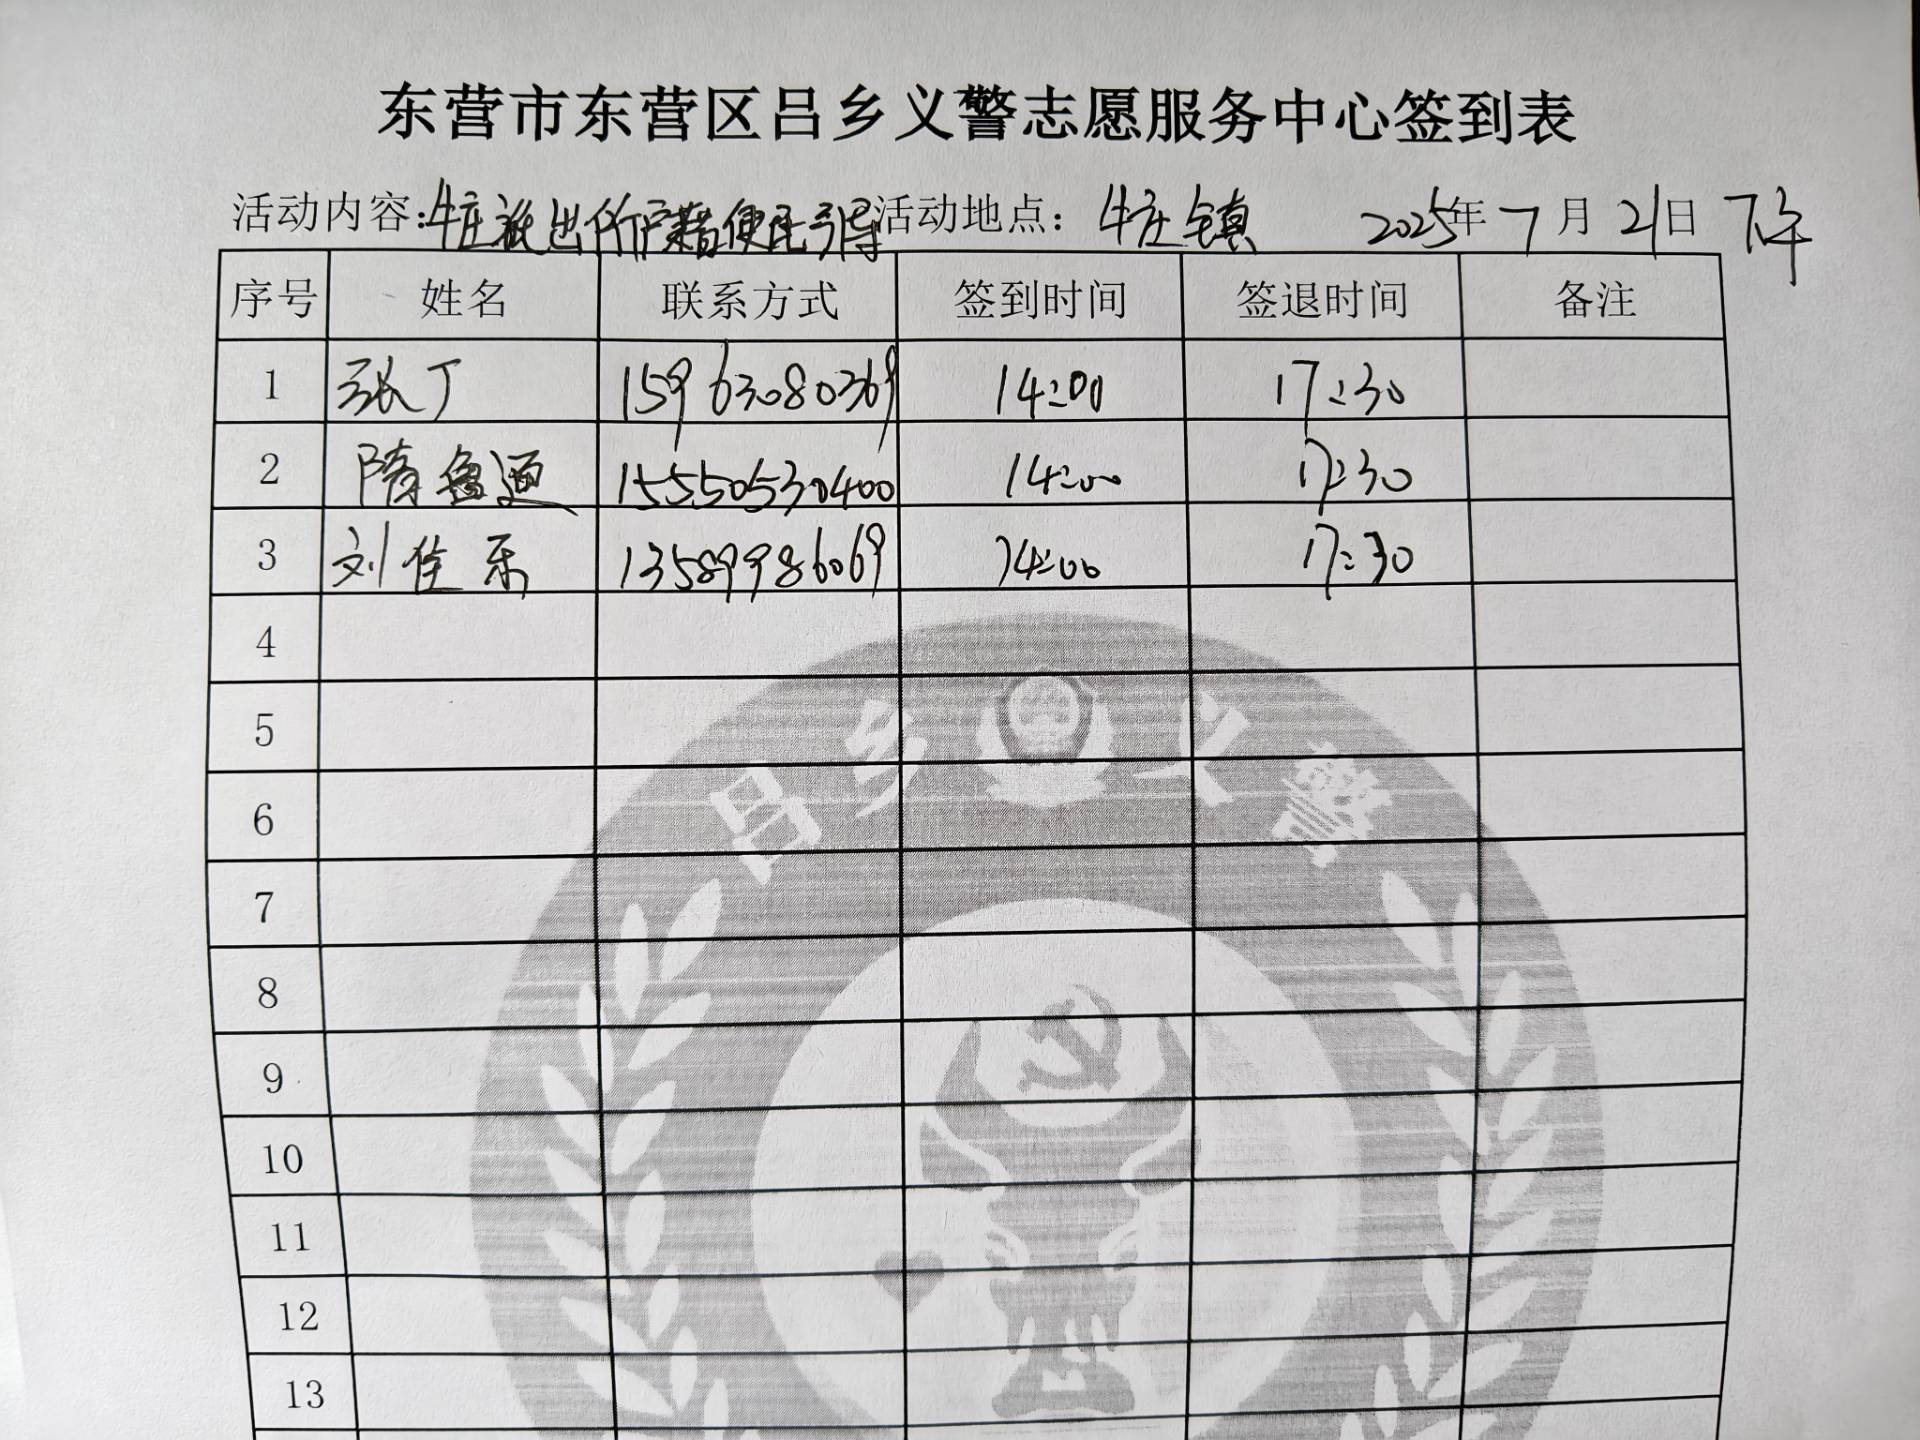 东营市东营区吕乡义警志愿服务中心签到表
活动内容：牛庄派出所户籍便民引导 活动地点：牛庄镇 2025年7月21日 下午
序号 姓名 联系方式 签到时间 签退时间 备注
1 张丁 15963080369 14:00 17:30
2 隋鲁通 15550530400 14:00 17:30
3 刘佳乐 13589986069 14:00 17:30
4
5
6
7
8
9
10
11
12
13
吕乡义警